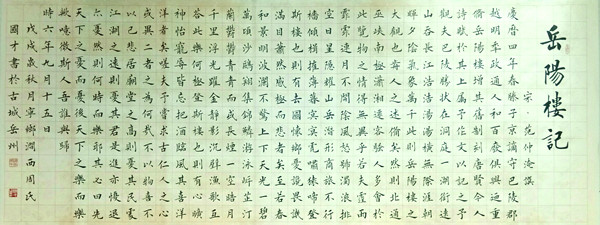 岳陽樓記
宋 范仲淹撰
慶曆四年春滕子京謫守巴陵郡
越明年政通人和百廢俱興迺重
修岳陽樓增其舊制刻唐賢今人
詩賦於其上屬予作文以記之予
觀夫巴陵勝狀在洞庭一湖銜遠
山吞長江浩浩湯湯橫無際涯朝
暉夕陰氣象萬千此則岳陽樓之
大觀也前人之述備矣然則北通
巫峽南極瀟湘遷客騷人多會於
此覽物之情得無異乎若夫霪雨
霏霏連月不開陰風怒號濁浪排
空日星隱耀山岳潛形商旅不行
檣傾楫摧薄暮冥冥虎嘯猿啼登
斯樓也則有去國懷鄉憂讒畏譏
滿目蕭然感極而悲者矣至若春
和景明波瀾不驚上下天光一碧
萬頃沙鷗翔集錦鱗游泳岸芷汀
蘭鬱鬱青青而或長煙一空皓月
千里浮光耀金靜影沉璧漁歌互
答此樂何極登斯樓也則有心曠
神怡寵辱皆忘把酒臨風其喜洋
洋者矣嗟夫予嘗求古仁人之心
或異二者之為何哉不以物喜不
以己悲居廟堂之高則憂其民處
江湖之遠則憂其君是進亦憂退
亦憂然則何時而樂耶其必曰先
天下之憂而憂後天下之樂而樂
歟噫微斯人吾誰與歸
時六年九月十五日
戊戌歲秋月寧鄉澗西周氏
國才書於古城岳州